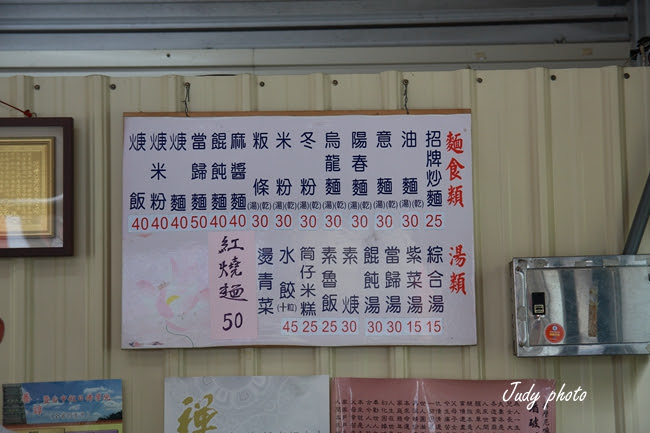 麵食類
招牌炒麵 25
油麵(湯)(乾) 30
意麵(湯)(乾) 30
陽春麵(湯)(乾) 30
烏龍麵(湯)(乾) 30
冬粉(湯)(乾) 30
米粉(湯)(乾) 30
粄條(湯)(乾) 30
麻醬麵 40
餛飩麵 40
當歸麵 50
焿麵 40
焿米粉 40
焿飯 40
湯類
綜合湯 15
紫菜湯 15
當歸湯 30
餛飩湯 30
素焿 30
素魯飯 25
筒仔米糕 25
水餃(十粒) 45
燙青菜
紅燒麵 50
禪
Judy photo